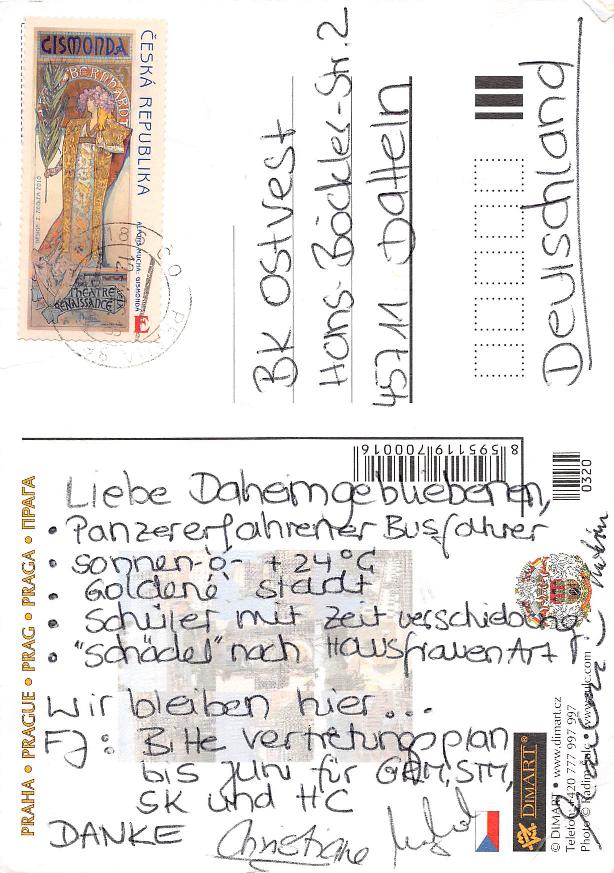 GISMONDA
BERNHARDT
THEATRE
RENAISSANCE
ČESKÁ REPUBLIKA
ALFONS MUCHA: GISMONDA
E
BK Ostvest
Hans-Böckler-Str. 2
45711 Datteln
Deutschland
PRAHA • PRAGUE • PRAG • PRAGA • ПРАГА
8595119700016
0320
Liebe Daheimgebliebenen,
• Panzererfahrener Busfahrer
• sonnen-ö- +24°C
• Goldene Stadt
• Schüler mit Zeitverschiebung
• "Schädel" nach Hausfrauen Art
Wir bleiben hier...
FJ: Bitte Vertretungsplan
bis Juni für GRM, STM,
SK und HC
DANKE Christiane
DIMART®
© DIMART • www.dimart.cz
Telefon: +420 777 997 997